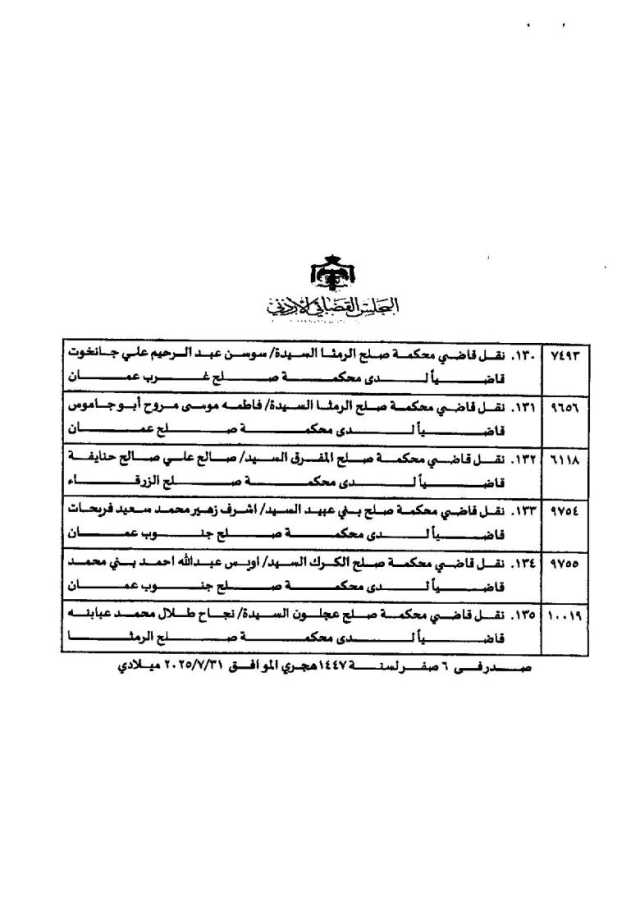 المجلس القضائي الأردني
٧٤٩٣ ١٣٠. نقل قاضي محكمة صلح الرمثا السيدة/ سوسن عبد الرحيم علي جانخوت
قاضياً لدى محكمة صلح غرب عمان
٩٦٥٦ ١٣١. نقل قاضي محكمة صلح الرمثا السيدة/ فاطمه موسى مروح أبو جاموس
قاضياً لدى محكمة صلح عمان
٦١١٨ ١٣٢. نقل قاضي محكمة صلح المفرق السيد/ صالح علي صالح حنايفة
قاضياً لدى محكمة صلح الزرقاء
٩٧٥٤ ١٣٣. نقل قاضي محكمة صلح بني عبيد السيد/ اشرف زهير محمد سعيد فريحات
قاضياً لدى محكمة صلح جنوب عمان
٩٧٥٥ ١٣٤. نقل قاضي محكمة صلح الكرك السيد/ اويس عبدالله احمد بني محمد
قاضياً لدى محكمة صلح جنوب عمان
١٠٠١٩ ١٣٥. نقل قاضي محكمة صلح عجلون السيدة/ نجاح طلال محمد عبابنه
قاضياً لدى محكمة صلح الرمثا
صدر في ٦ صفر لسنة ١٤٤٧ هجري الموافق ٢٠٢٥/٧/٣١ ميلادي